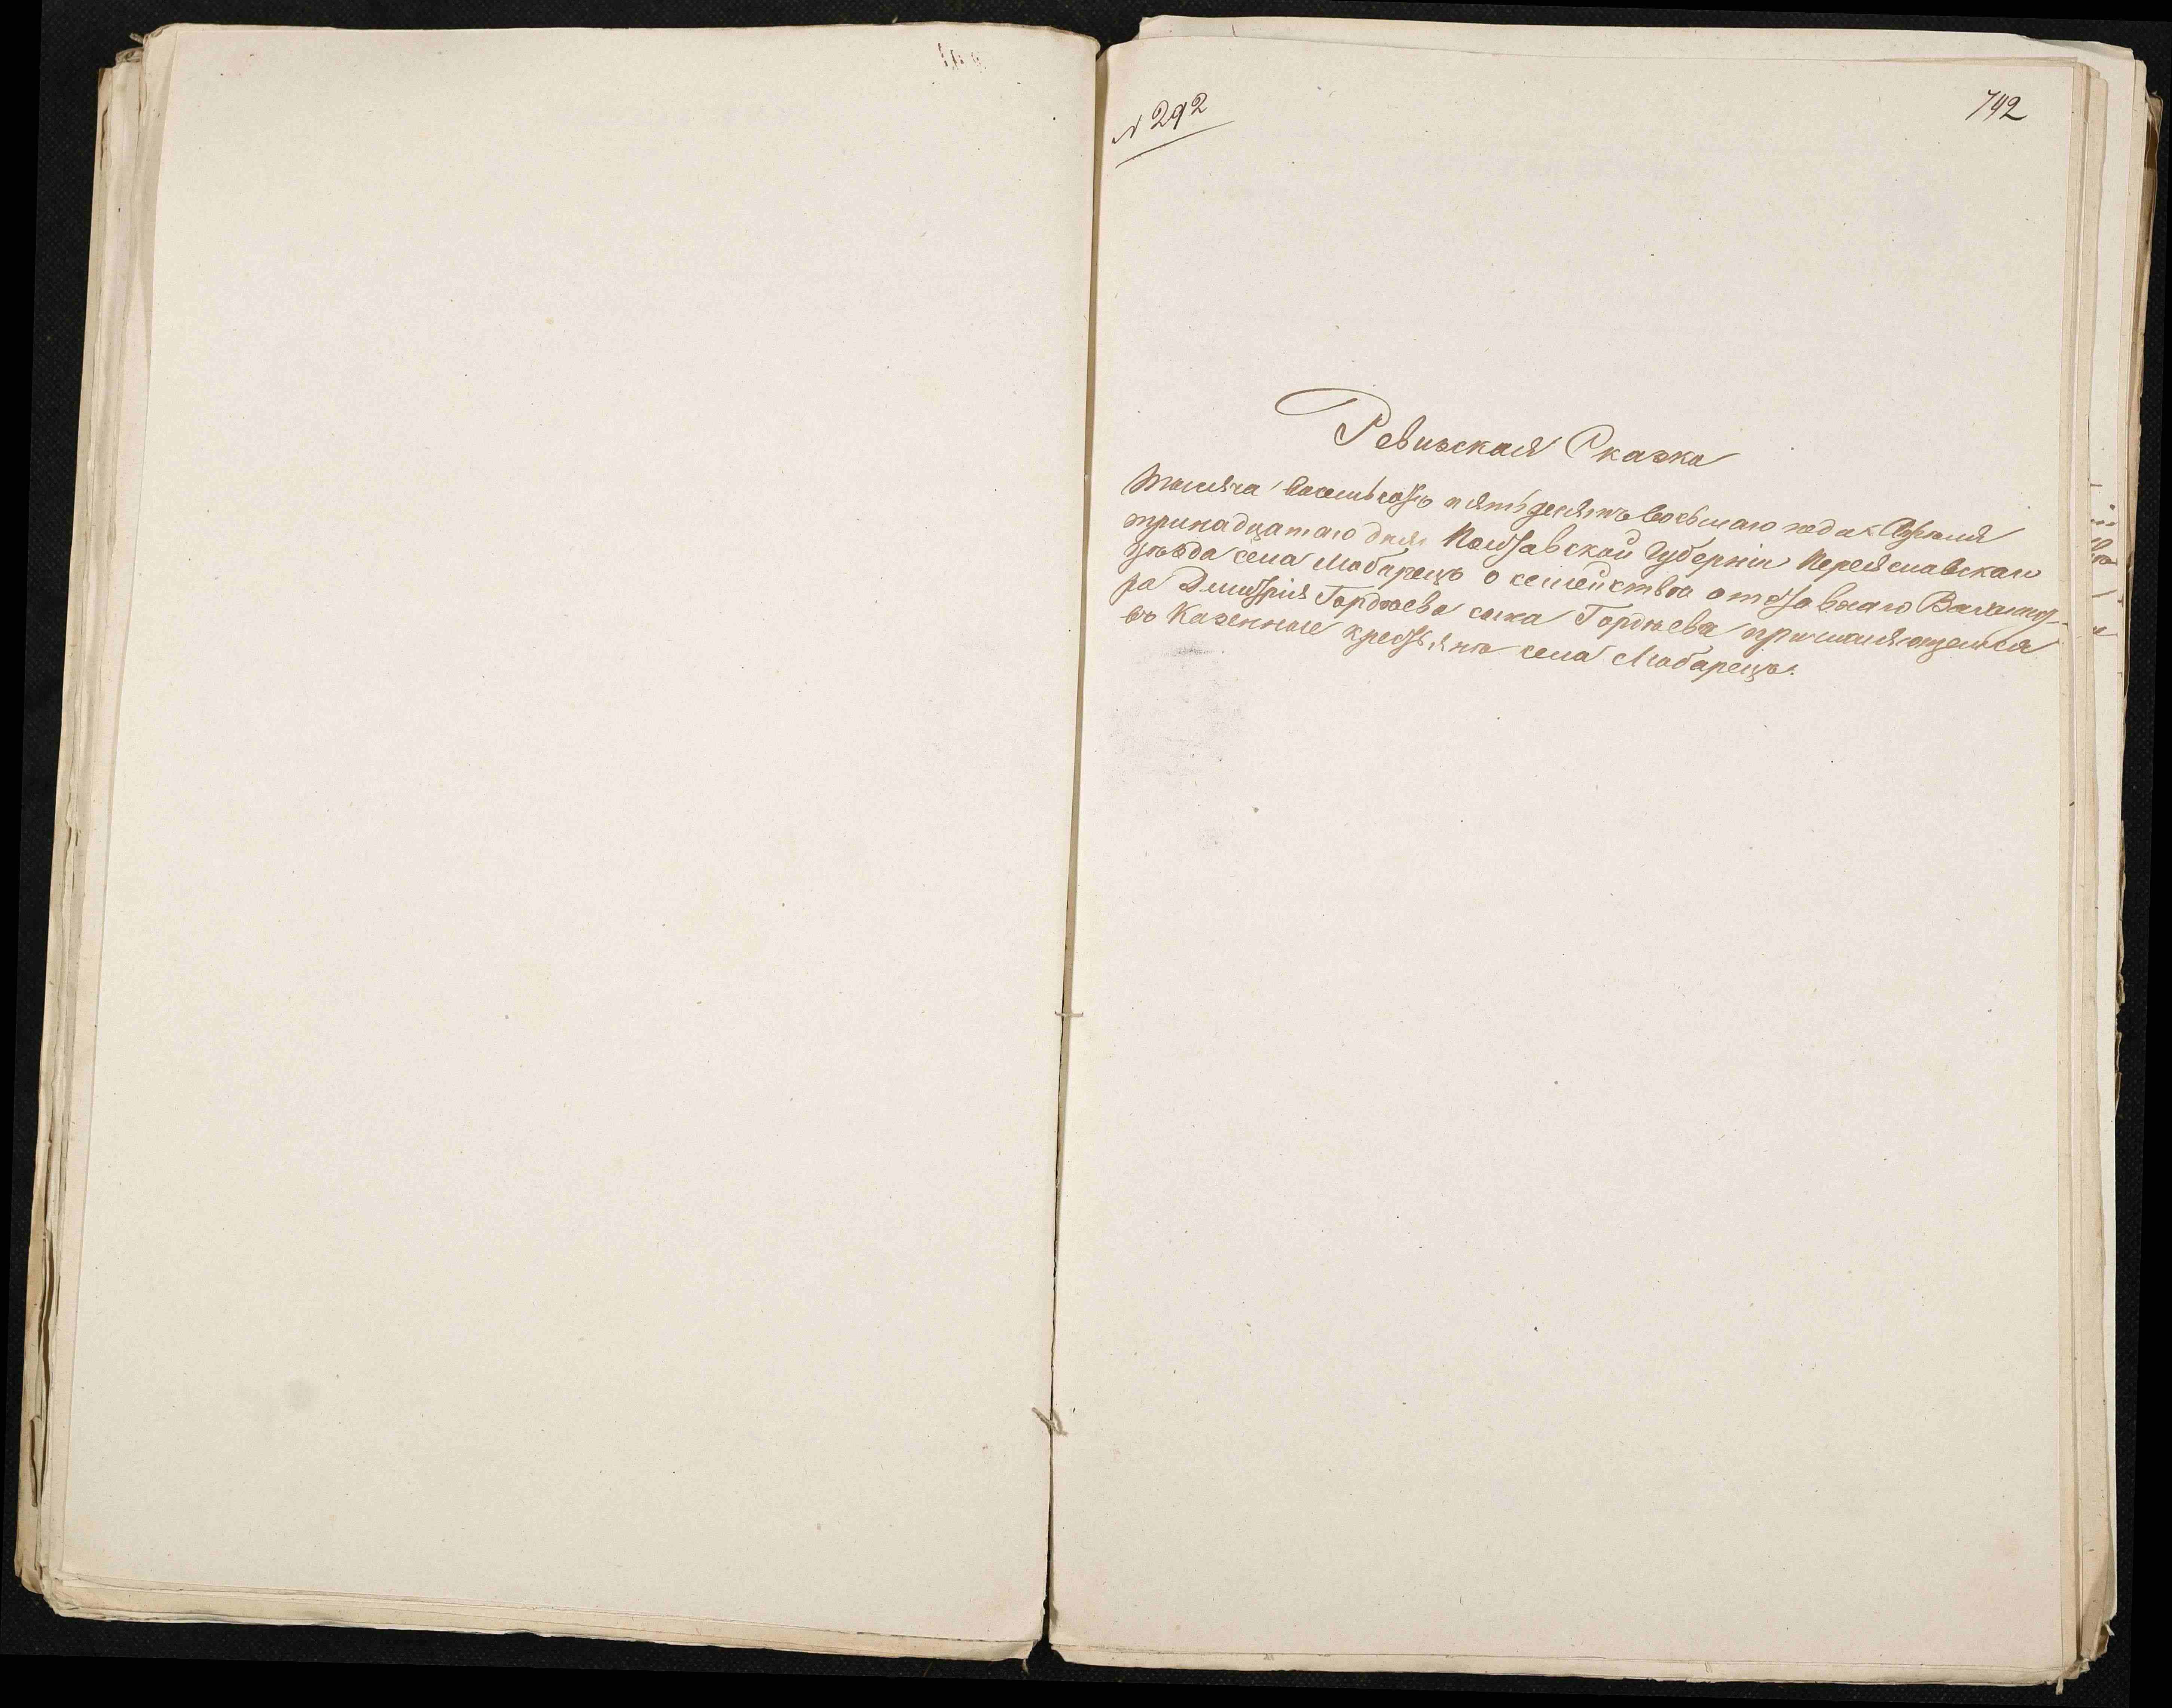 № 292
742
Ревизская Сказка
Тысяча восемьсотъ пятьдесятъ восьмаго года Апреля
тринадцатаго дня Полтавской Губерніи Переяславскаго
уѣзда села Любарецъ о семействѣ отставнаго Вахмист-
ра Дмитрія Гордѣева сына Гордѣева причисляющемся
въ Казенные крестьяне села Любарецъ.